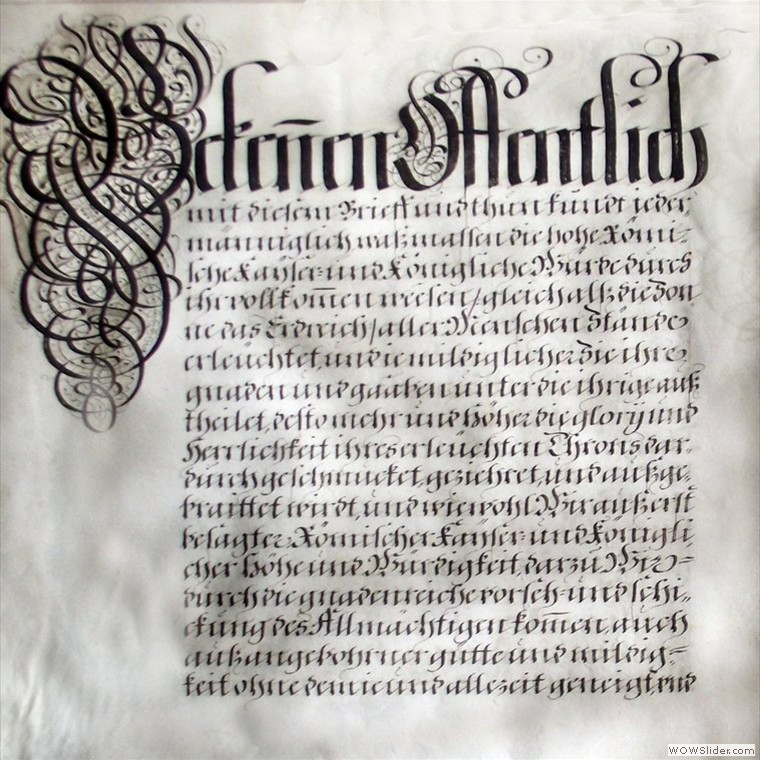 Bekeñen Offentlich
mit diesem Brieff und thun kundt jeder,
männiglich, waßmassen die hohe Römi-
sche Kayser- und Königliche Würde durch
ihr vollkom̅en weesen / gleich alß die Son
ne das Erdreich / aller Menschen Stände
erleuchtet, und ie mildiglicher die ihre
gnaden und gaaben unter die ihrige auß
theilet, desto mehr und Höher die glory und
Herrlichkeit ihres erleuchten Throns dar
durch geschmucket, geziehret, und außge,
braittet wirdt, und wiewohl Wir auß erst
besagter Römischer Kayser- und Königli
cher Höhe und Würdigkeit, darzu Wir
durch die gnadenreiche vorseh- und schi-
ckung des Allmächtigen kom̅en, auch
auß angebohrner gütte und mildig-
keit ohne dem ie und allezeit geneigt, und
WOWSlider.com